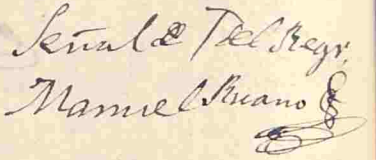 Señal & del Regr,
Manuel Ruano